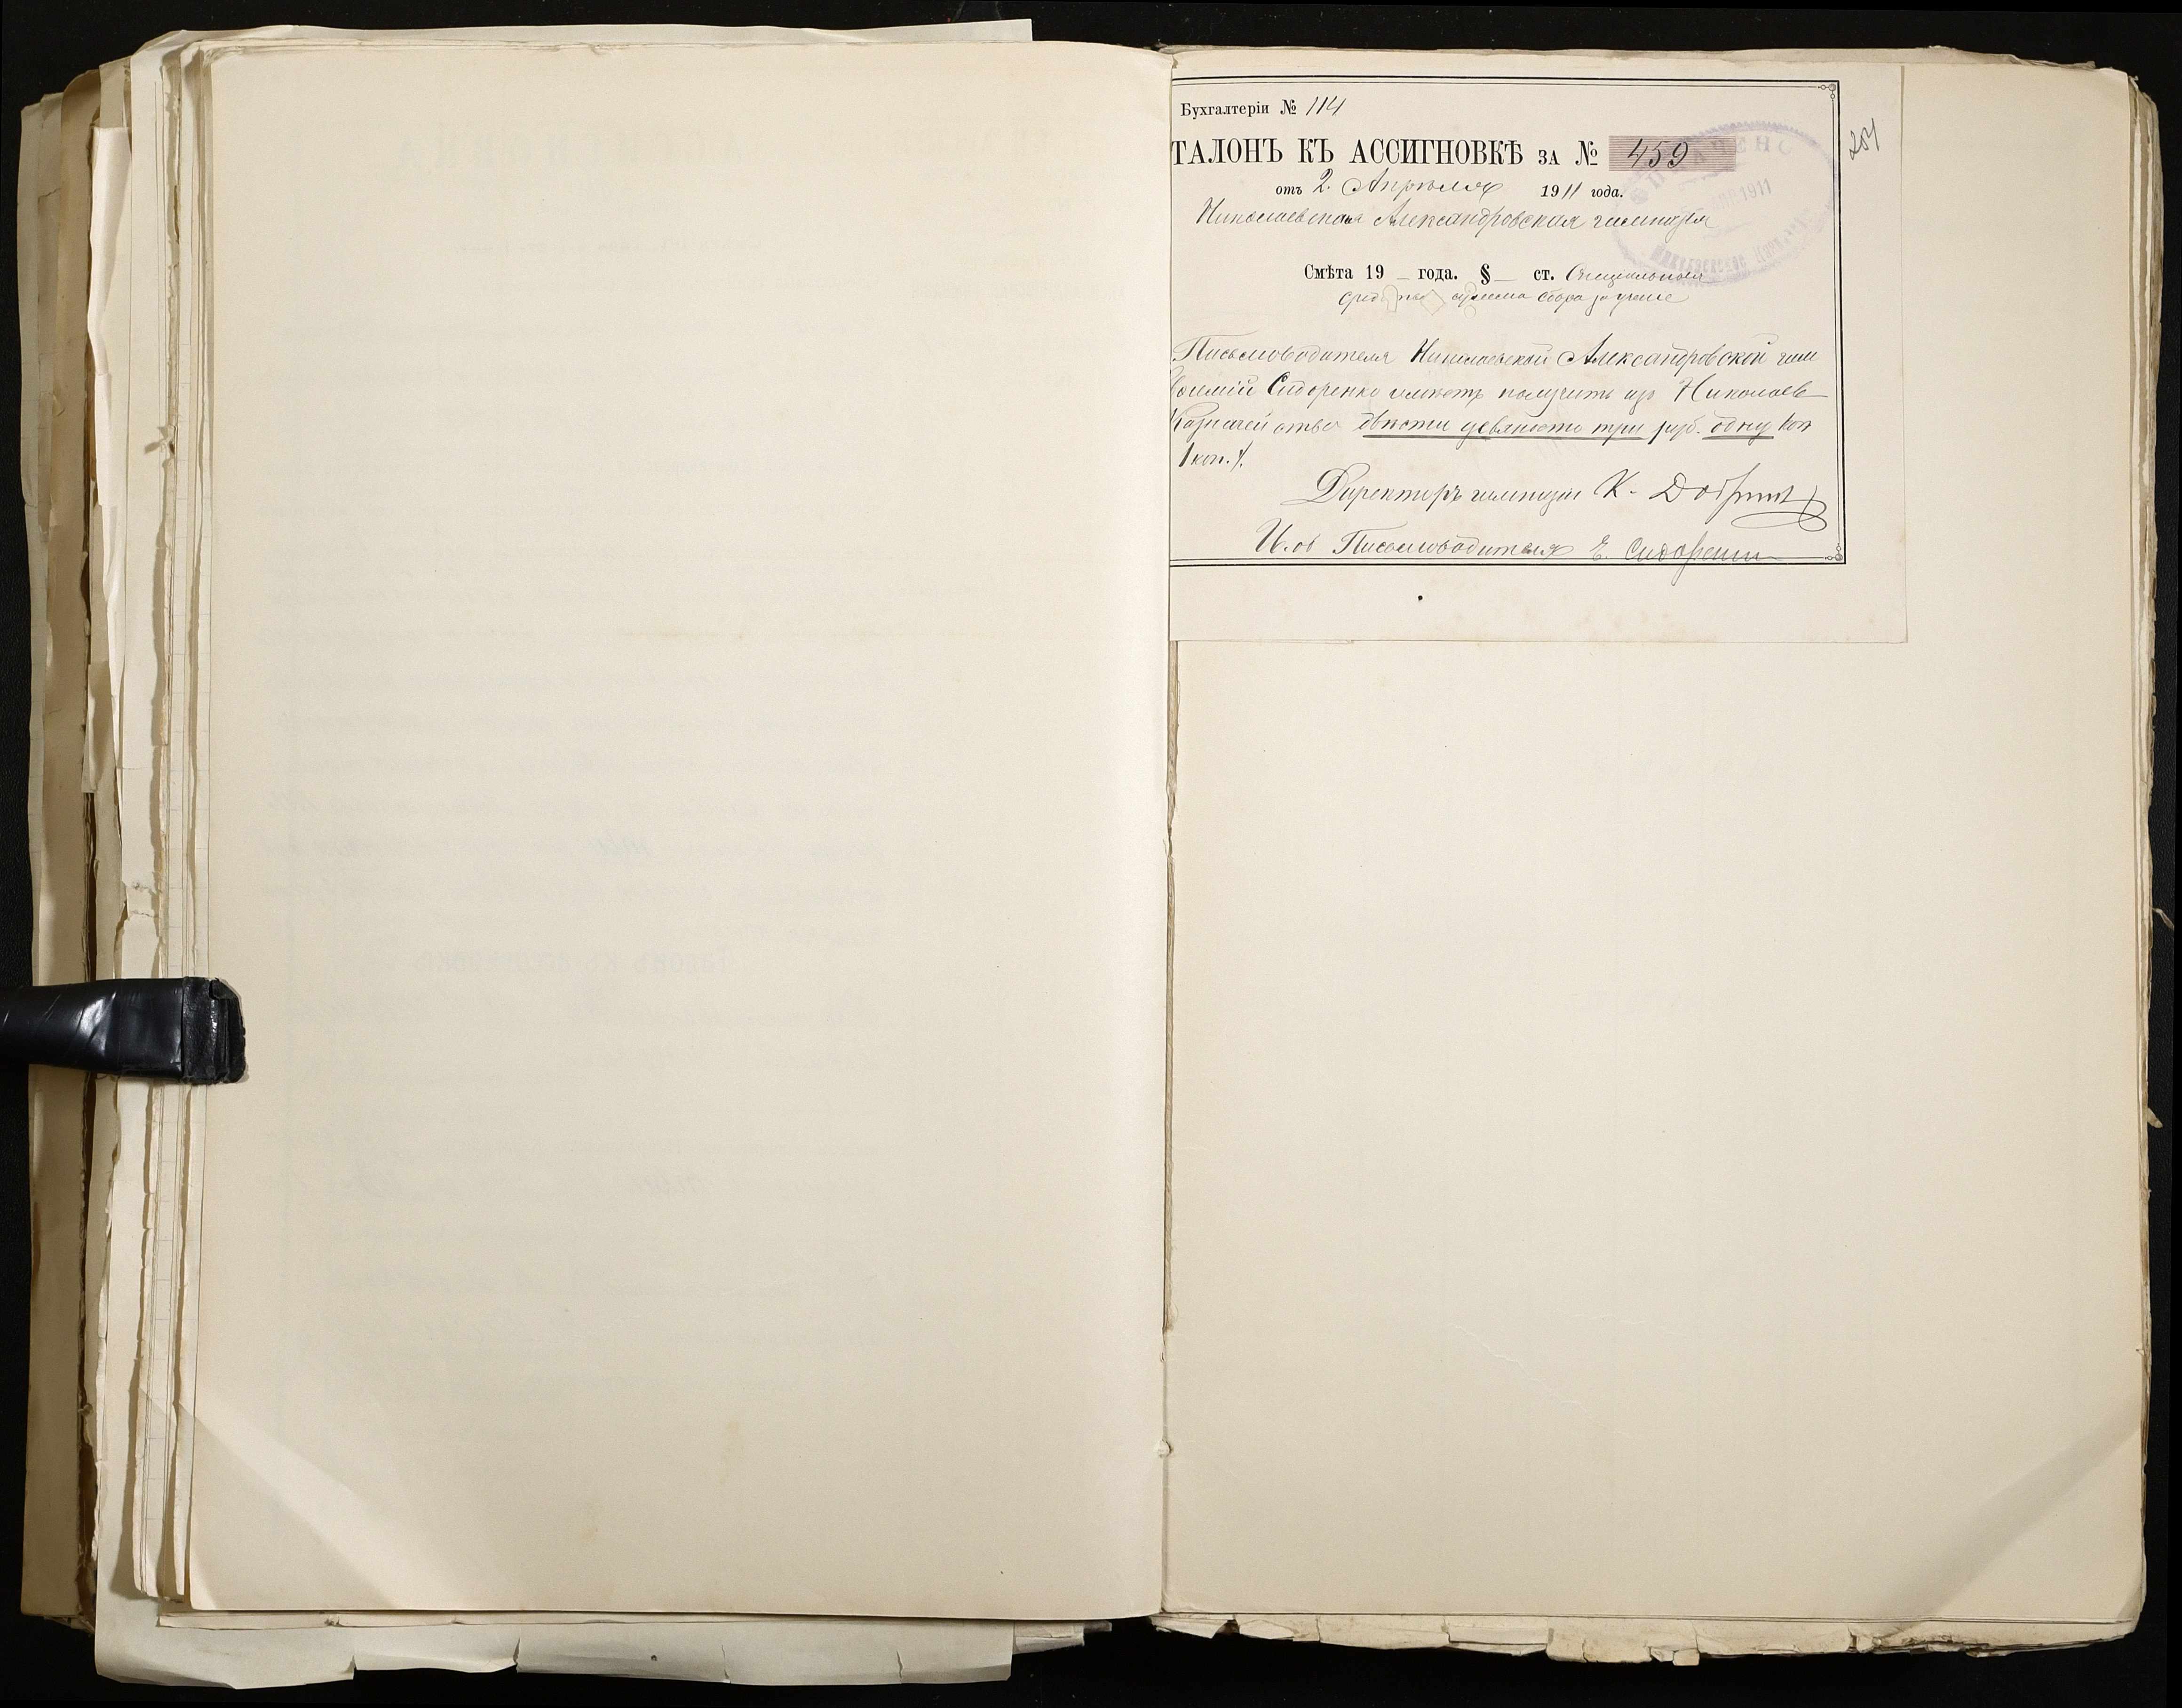 Бухгалтеріи № 114
ТАЛОНЪ КЪ АССИГНОВКѢ ЗА № 459
отъ 2. Апрѣля 1911 года.
Николаевская Александровская гимназія
Смѣта 19 _ года. § — ст. Спеціальныя
сумма сбора за ученіе
Письмоводитель Николаевской Александровской гим
Сидоренко можетъ получить изъ Николаев
Казначейства двѣсти девяносто три руб. одну коп
1 коп. /.
Директоръ гимназіи К.
И. об Письмоводителя Е. Сидоренко
204
1911